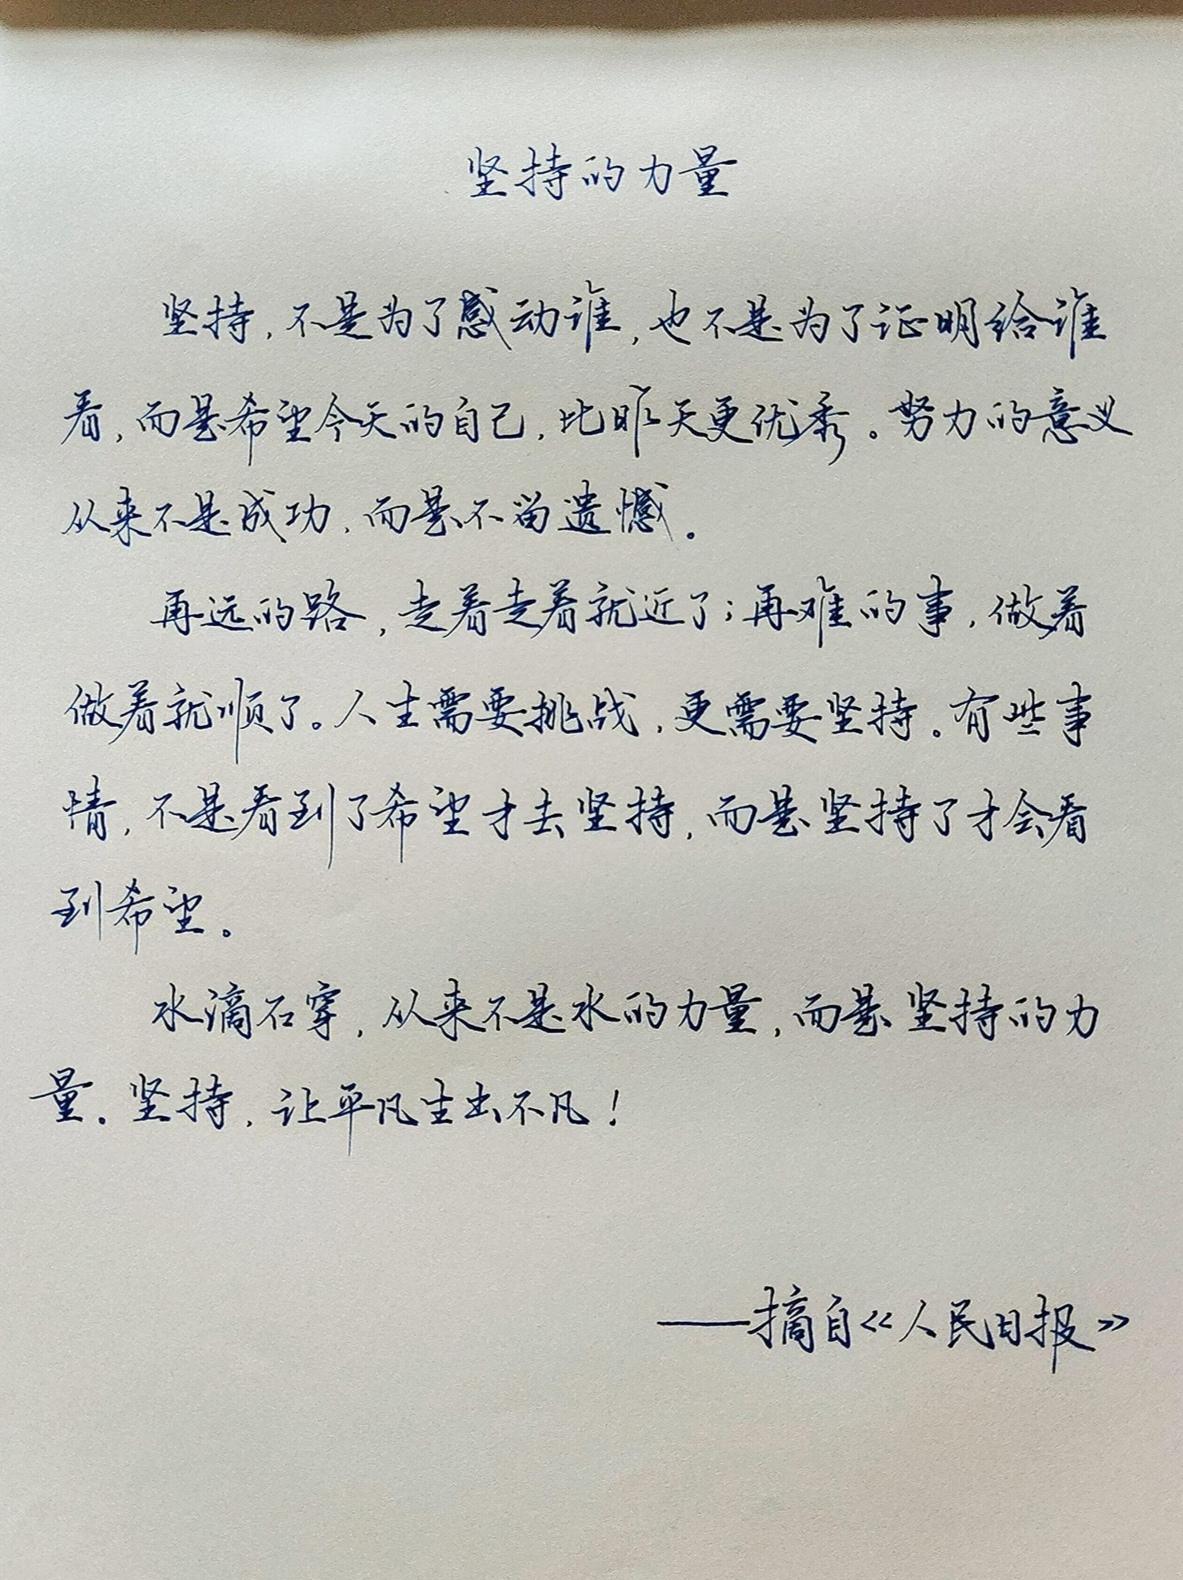 坚持的力量
坚持,不是为了感动谁,也不是为了证明给谁
看,而是希望今天的自己,比昨天更优秀。努力的意义
从来不是成功,而是不留遗憾。
再远的路,走着走着就近了;再难的事,做着
做着就顺了。人生需要挑战,更需要坚持。有些事
情,不是看到了希望才去坚持,而是坚持了才会看
到希望。
水滴石穿,从来不是水的力量,而是坚持的力
量。坚持,让平凡生出不凡!
——摘自《人民日报》